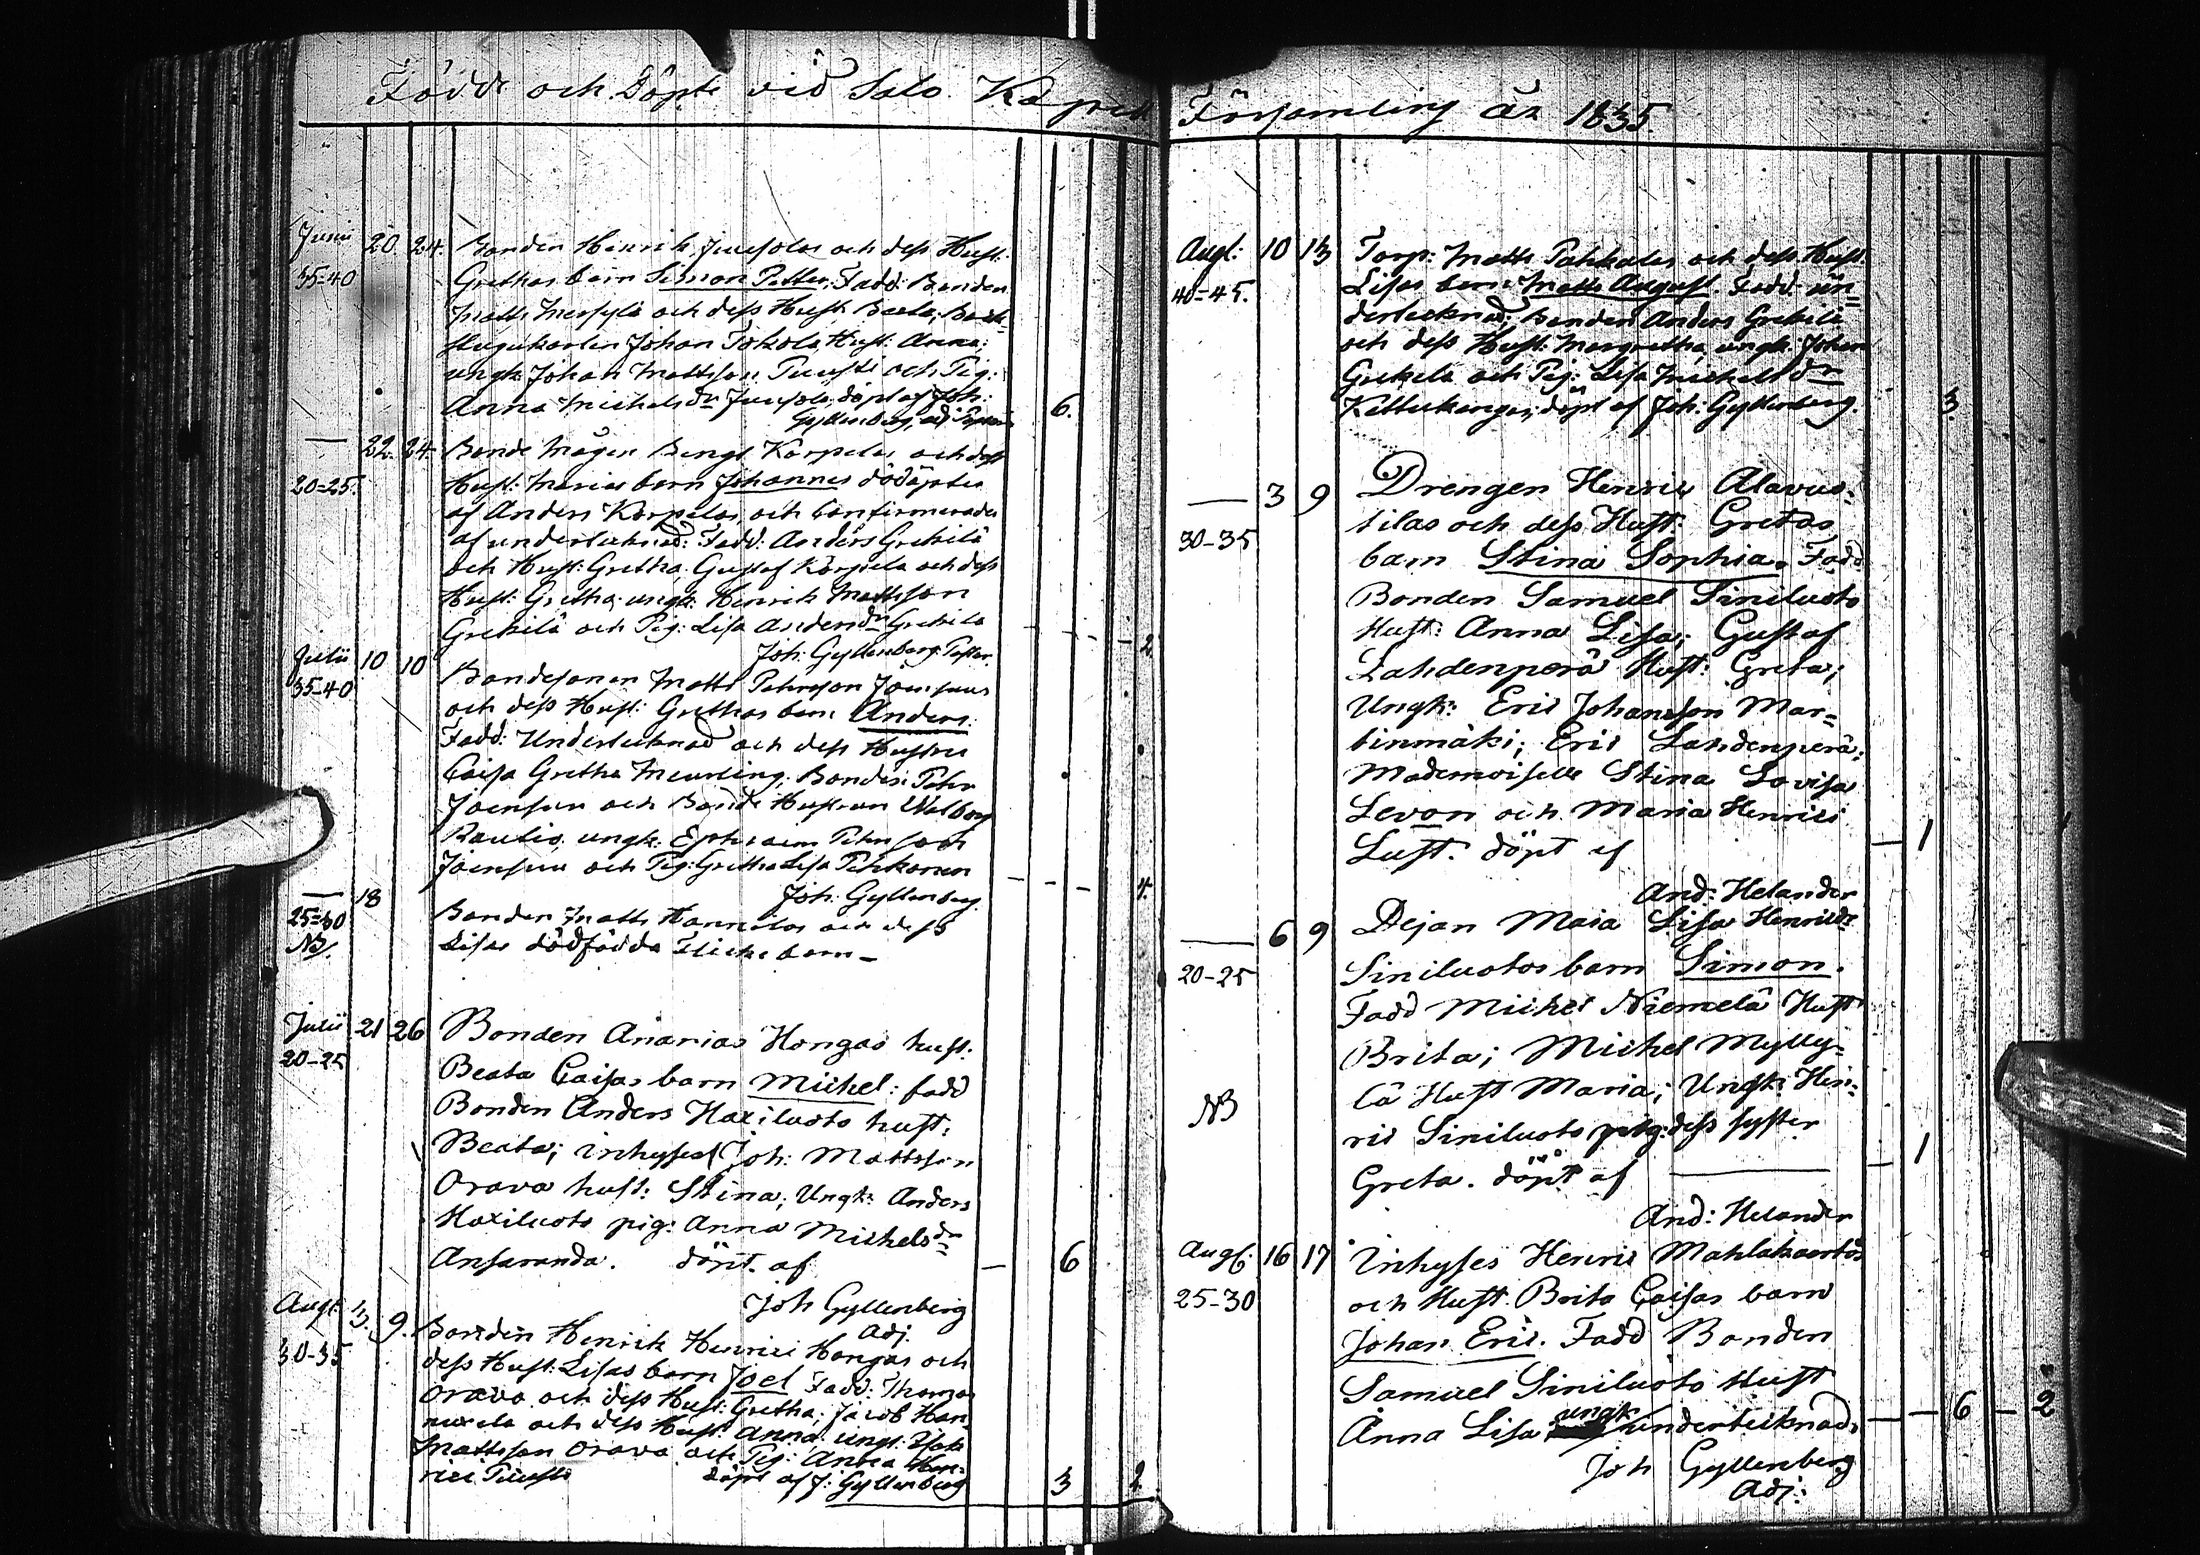 Födde och Döpte vid Salo Kapell
Församling år 1835.
Junii 20. 24. Bonden Henrik Juusolas och dess Hust:
35=40 Grethas barn Simon Petter, Fadd: Bonden
Matts och dess Hust: Beata; Back-
stugukarlen Johan Tokola Hust: Anna;
ungk: Johan Mattsson Puusti och Pig:
Anna Michelsdr Juusola, döpt af Joh:
Gyllenberg, adj: 6.
— 22. 24. Bonde Mågen Bengt Korpelas och dess
20=25. Hust: Marias barn Johannes döddöptes
af Anders Korpelas, och Confirmerades
af undertecknad: Fadd: Anders Grekilä
och Hust: Gretha, Gustaf Korpela och dess
Hust: Gretha; ungk: Henrik Mattsson
Grekilä och Pig: Lisa Andersdr Grekilä
Joh: Gyllenberg 2
Julii 10 10 Bondesonen Matts Pehrsson Joensuus
35=40 och dess Hust: Grethas barn Anders.
Fadd: Undertecknad och dess Hustru
Caisa Gretha Meurling, Bonden Pehr
Joensuu och Bonde Hustrun Walborg
Rautio, ungk: Ephraim Pehrsson
Joensuu och Pig: Gretha Lisa Pehkonen
Joh: Gyllenberg. 4.
— 18
25=30 Bonden Matts Hannilas och dess
NB. Lisas dödfödda Flicke barn —
Julii 21 26 Bonden Ananias Hongas hust.
20-25 Beata Caisas barn Michel: fadd
Bonden Anders Haxiluoto hust:
Beata; inhyses Joh: Mattsson
Orava hust: Stina; Ungk: Anders
Haxiluoto pig: Anna Michelsdr
Ansaranda. döpt. af — 6
Joh Gyllenberg
Adj.
Augt. 3. 9. Bonden Henrik Henrici Hongas och
30-35 dess Hust: Lisas barn Joel Fadd: Thomas
Orava och dess Hust: Gretha; Jacob Han-
nuxela och dess Hust: Anna, ungk: Isak
Mattsson Orava och Pig: Anna Hen-
rici Puusti döpt af J: Gyllenberg 3 2
Augt: 10 13 Torp: Matts Pahkalas och dess Hust:
40=45. Lisas barn Matts August. Fadd: un=
dertecknad, Bonden Anders Grekilä
och dess Hust: Margretha, ungk: Johan
Grekilä och Pig: Lisa Michelsdr
Kettukangas; döpt af Joh: Gyllenberg. 3
— 3 9 Drengen Henric Alavuo-
30-35 tilas och dess Hust: Gretas
barn Stina Sophia. Fadd
Bonden Samuel Siniluoto
Hust: Anna Lisa; Gustaf
Lahdenperä Hust: Greta;
Ungk: Eric Johansson Mar=
tinmäki; Eric Lahdenperä;
Mademoiselle Stina Lovisa
Levon och Maria Henrici
Lust. döpt af — 1
And: Helander
— 6 9 Dejan Maia Lisa Henricdr
20-25 Siniluotos barn Simon.
Fadd Michel Niemelä Hust
Brita; Michel Mylly-
NB lä Hust Maria; Ungk: Hen-
ric Siniluoto pig: dess syster
Greta. döpt af — 1
And: Helander
Augt. 16 17 Inhyses Henric Mahlakaartos
25-30 och Hust. Brita Caisas barn
Johan Eric. Fadd Bonden
Samuel Siniluoto Hust
Anna Lisa ungk undertecknad. — — 6 — 2
Joh Gyllenberg
Adj: